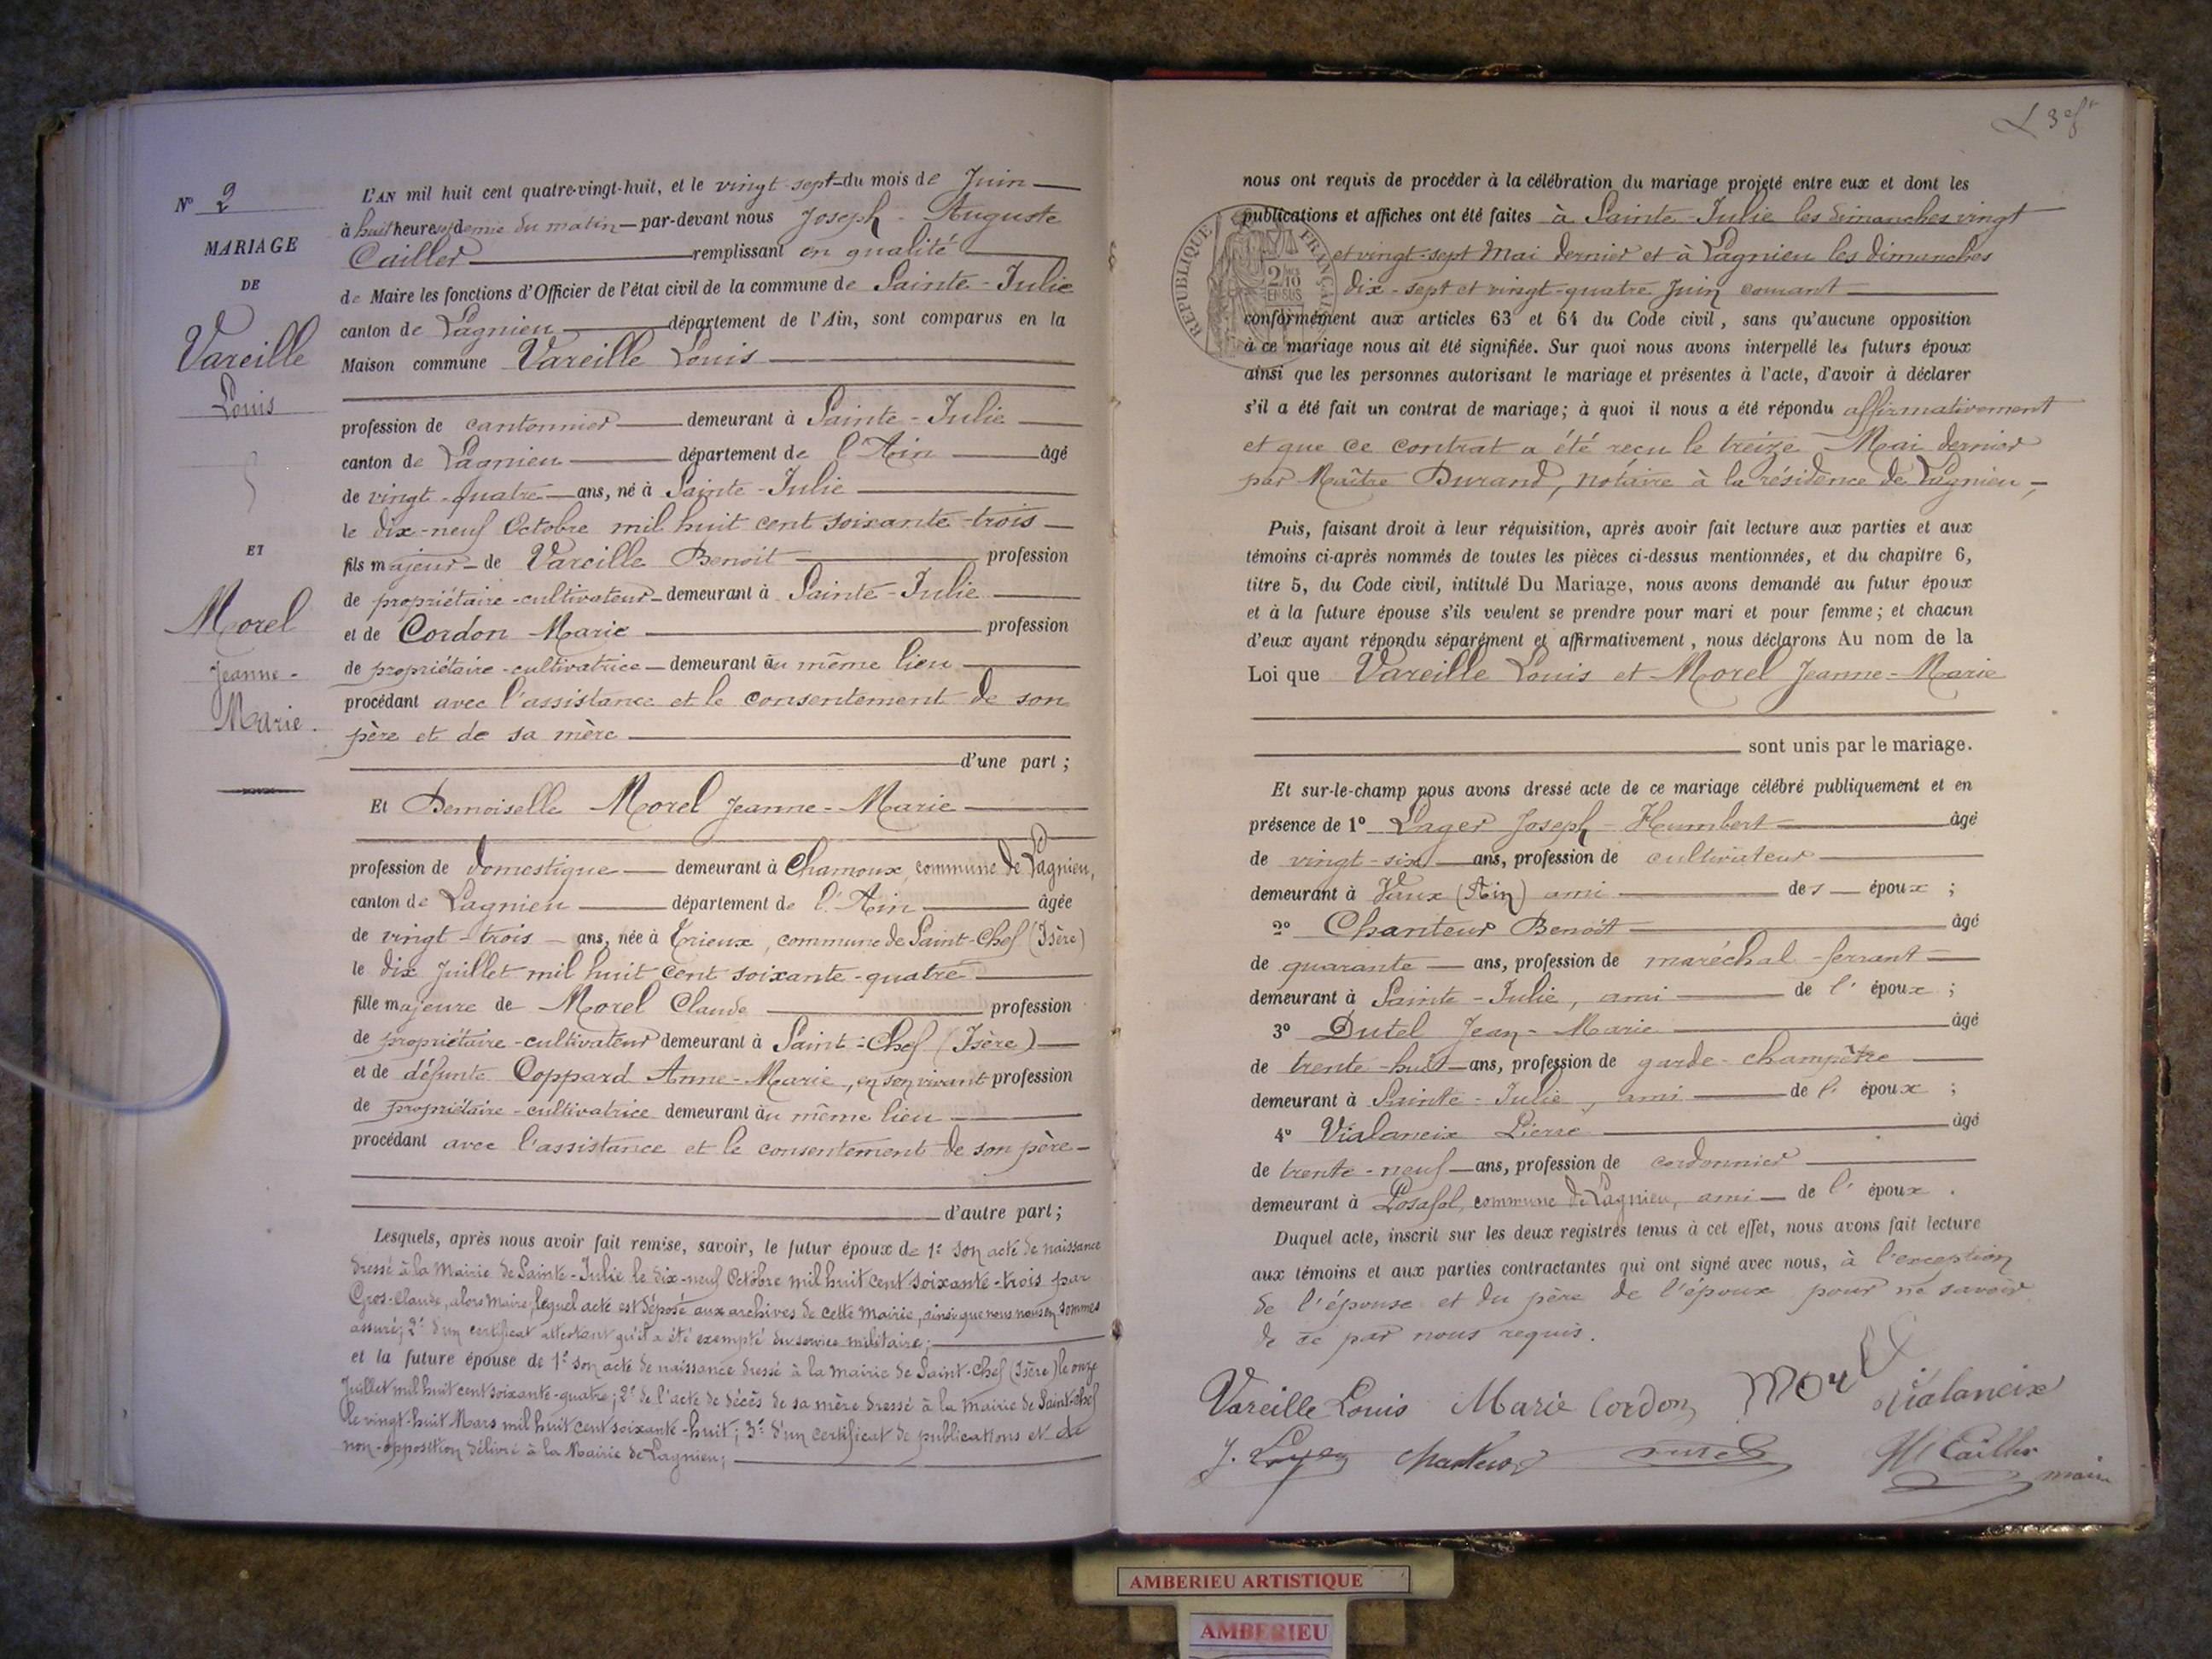 N° 2
MARIAGE
DE
Vareille
Louis
ET
Morel
Jeanne-
Marie.
L'AN mil huit cent quatre-vingt-huit, et le vingt-sept du mois de Juin
à huit heures et demie du matin par-devant nous Joseph-Auguste
Cailler remplissant en qualité
de Maire les fonctions d'Officier de l'état civil de la commune de Sainte-Julie
canton de Lagnieu département de l'Ain, sont comparus en la
Maison commune Vareille Louis
profession de cantonnier demeurant à Sainte-Julie
canton de Lagnieu département de l'Ain âgé
de vingt-quatre ans, né à Sainte-Julie
le dix-neuf Octobre mil huit cent soixante-trois
fils majeur de Vareille Benoit profession
de propriétaire-cultivateur demeurant à Sainte-Julie
et de Cordon Marie profession
de propriétaire-cultivatrice demeurant au même lieu
procédant avec l'assistance et le consentement de son
père et de sa mère
d'une part ;
Et Demoiselle Morel Jeanne-Marie
profession de domestique demeurant à Chamoux, commune de Lagnieu,
canton de Lagnieu département de l'Ain âgée
de vingt-trois ans, née à Trieux, commune de Saint-Chef (Isère)
le dix Juillet mil huit cent soixante-quatre
fille majeure de Morel Claude profession
de propriétaire-cultivateur demeurant à Saint-Chef (Isère)
et de défunte Coppard Anne-Marie, en son vivant profession
de propriétaire-cultivatrice demeurant au même lieu
procédant avec l'assistance et le consentement de son père
d'autre part ;
Lesquels, après nous avoir fait remise, savoir, le futur époux de 1° son acte de naissance
dressé à la Mairie de Sainte-Julie le dix-neuf Octobre mil huit cent soixante-trois par
Gros-Claude, alors Maire, lequel acte est déposé aux archives de cette Mairie, ainsi que nous nous en sommes
assuré; 2° d'un certificat attestant qu'il a été exempté du service militaire;
et la future épouse de 1° son acte de naissance dressé à la mairie de Saint-Chef (Isère) le onze
Juillet mil huit cent soixante-quatre; 2° de l'acte de décès de sa mère dressé à la mairie de Saint-Chef
le vingt-huit Mars mil huit cent soixante-huit; 3° d'un certificat de publications et de
non-opposition délivré à la Mairie de Lagnieu;
nous ont requis de procéder à la célébration du mariage projeté entre eux et dont les
publications et affiches ont été faites à Sainte-Julie les dimanches vingt
et vingt-sept Mai dernier et à Lagnieu les dimanches
dix-sept et vingt-quatre Juin courant
REPUBLIQUE FRANÇAISE
conformément aux articles 63 et 64 du Code civil, sans qu'aucune opposition
à ce mariage nous ait été signifiée. Sur quoi nous avons interpellé les futurs époux
ainsi que les personnes autorisant le mariage et présentes à l'acte, d'avoir à déclarer
s'il a été fait un contrat de mariage; à quoi il nous a été répondu affirmativement
et que ce contrat a été reçu le treize Mai dernier
par Maître Durand, notaire à la résidence de Lagnieu,
Puis, faisant droit à leur réquisition, après avoir fait lecture aux parties et aux
témoins ci-après nommés de toutes les pièces ci-dessus mentionnées, et du chapitre 6,
titre 5, du Code civil, intitulé Du Mariage, nous avons demandé au futur époux
et à la future épouse s'ils veulent se prendre pour mari et pour femme; et chacun
d'eux ayant répondu séparément et affirmativement, nous déclarons Au nom de la
Loi que Vareille Louis et Morel Jeanne-Marie
sont unis par le mariage.
Et sur-le-champ nous avons dressé acte de ce mariage célébré publiquement et en
présence de 1° Lager Joseph-Humbert âgé
de vingt-six ans, profession de cultivateur
demeurant à Vaux (Ain) ami des époux ;
2° Chanteur Benoît âgé
de quarante ans, profession de maréchal-ferrant
demeurant à Sainte-Julie, ami de l' époux ;
3° Dutel Jean-Marie âgé
de trente-huit ans, profession de garde-champêtre
demeurant à Sainte-Julie, ami de l' époux ;
4° Vialaneix Pierre âgé
de trente-neuf ans, profession de cordonnier
demeurant à Posafol, commune de Lagnieu, ami de l' époux.
Duquel acte, inscrit sur les deux registres tenus à cet effet, nous avons fait lecture
aux témoins et aux parties contractantes qui ont signé avec nous, à l'exception
de l'épouse et du père de l'époux pour ne savoir
de ce par nous requis.
Vareille Louis Marie Cordon Morel Vialaneix
J. Lager Chanteur Dutel Cailler
maire
AMBERIEU ARTISTIQUE
AMBERIEU